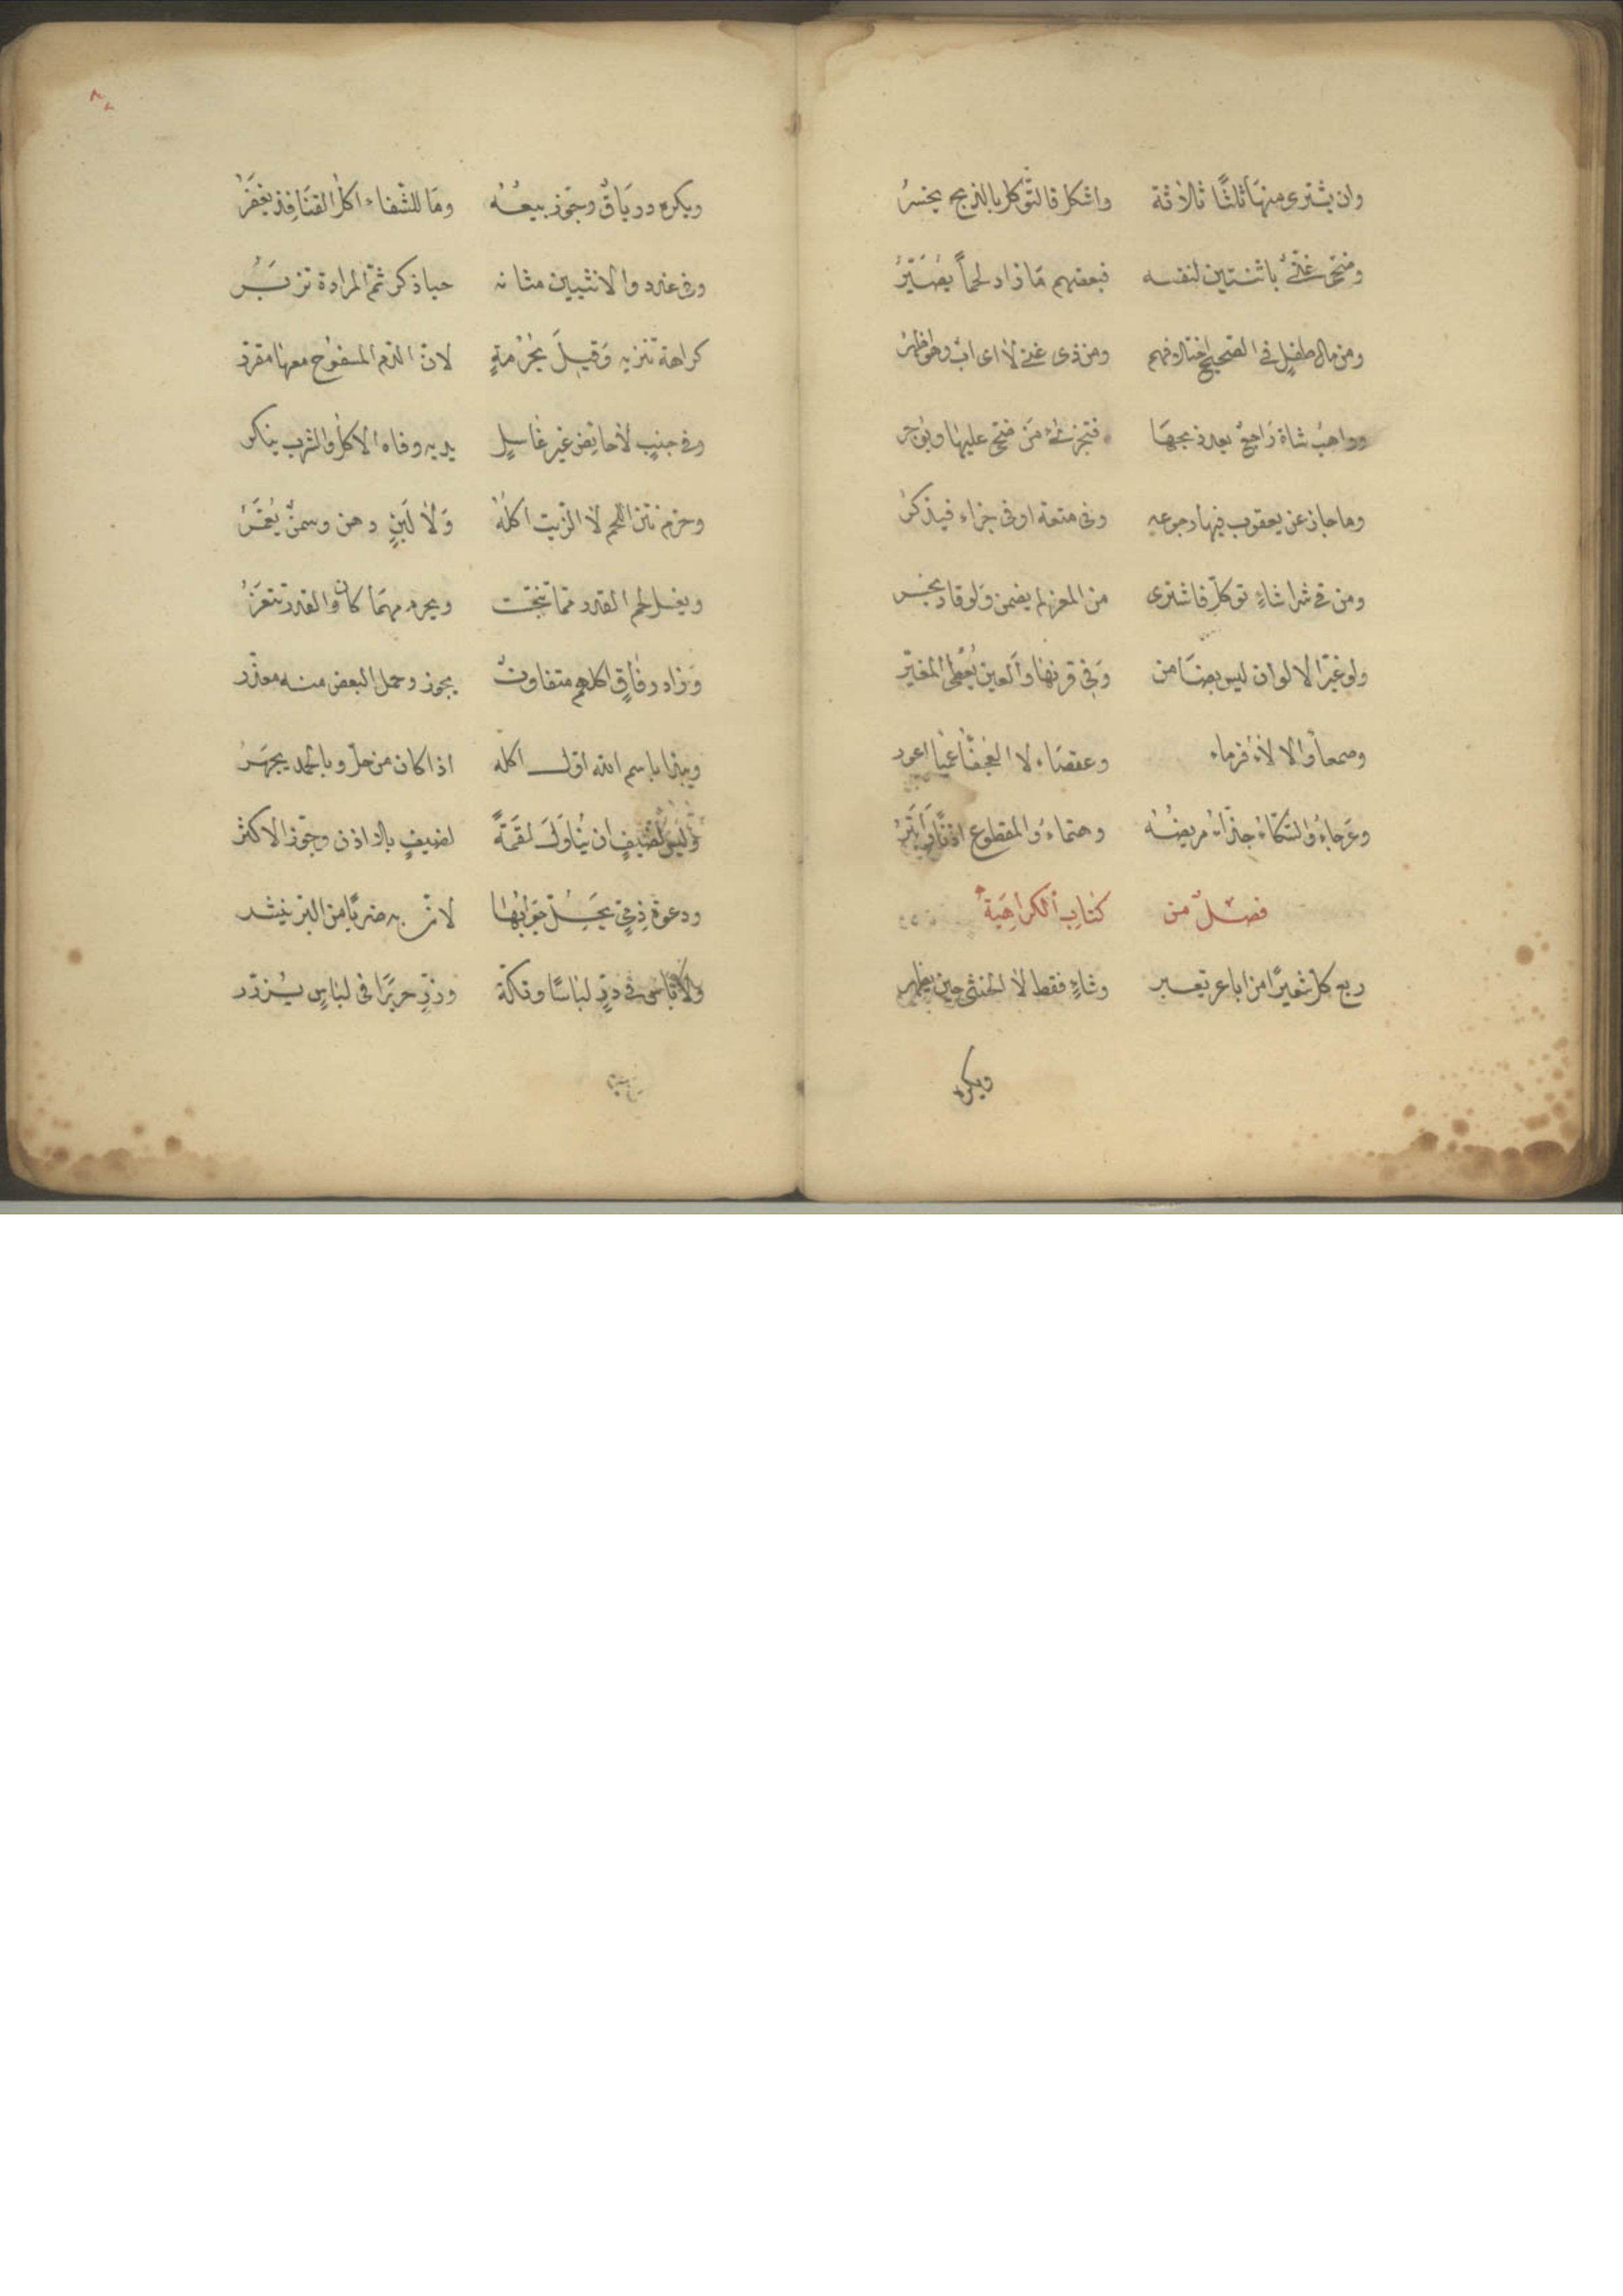 وان يشترى منهَا ثلثًا ثلاثة واشكل فالتوكل بالذبح يخسرُ
ومن ضحى غنىٌّ باثنتين لنفسه فبعضهم مَا زاد لحماً يصَيّرُ
ومن مال طفلٍ فى الصحيح اختلافهم ومن ذى غنى لا اى ابٌ وهو ظهر
وواهبُ شاة رَاجعٌ بعد ذبحهَا فتجزئُ مَن ضحى عليها ويؤجر
وما جاز عن يعقوب فيها رجوعه وفى متعة او فى جزاء فيذكرُ
ومن فى شرا شاءٍ توكل فاشترى من المعز لم يضمن وَلو قاد يخسر
ولو غيّر الالوان ليس بضامن وَفى قرنها والعين يُعْطى المغيّر
وصمعا والا لاء فرماء وعقصَاء لا العجفَا عميا اعور
وعَرجاءُ والسّكاءُ جذّاءُ مريضُه وهتماءُ والمقطوع اذنًا وَابتَرُ
فصلٌ من كتابِ الكراهِيَةِ
ربع كل شعيرًا من اباعر تعبر وشاءٍ فقط لا الخنثى حين يظهر
ويكره
ويكره درياقٌ وجوّز بيعُهُ ومَا للشفاء اكلُ القنَافِذ يغفرُ
وفى غدد والانثيين مثانه حيا ذكر ثمّ المرارة تزبَرُ
كراهة تنزيه وَقيلَ بحُرْمةٍ لانّ الدم المسفوح معها مقرر
وفى جنبٍ لا حائضٍ غير غاسلٍ يديه وفاه الاكل والشرب ينكر
وحرم نتن اللحم لا الزيت اكلهُ وَلا لبَنٍ دهن وسمنٌ يُغيّرُ
ويغسل لحم القدر مما تنجّت ويحرم مهمَا كان والقدر تتغرغرُ
وَزاد رفَاقٍ اكلهم متفاوتٌ يجوز وحمل البعض منه معذّر
ويبدا باسم الله اوّل اكله اذا كان من حلّ وبالحمد يجهرُ
وَلَيْسَ لضَيفٍ ان يُناولَ لقمَةً لضيفٍ بلا اذن وجوّز الاكثر
ودعوةُ ذِمىٍّ يحسُن جَوَابُهَا
ولا باس فى درّ لباسًا وتكة وزرّ حريرًا فى لباسٍ يُزرّر